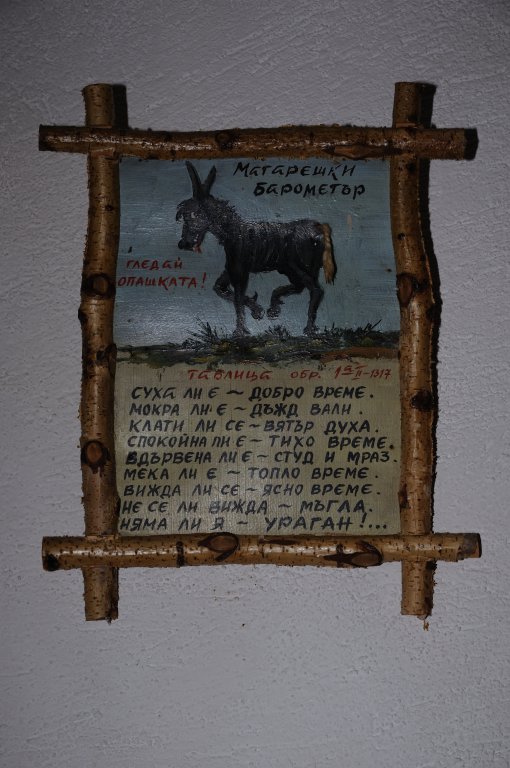 Магарешки
Барометър
гледай
опашката!
таблица обр.
Суха ли е ~ добро време.
Мокра ли е ~ дъжд вали.
Клати ли се ~ вятър духа.
Спокойна ли е ~ тихо време.
Вдървена ли е ~ студ и мраз.
Мека ли е ~ топло време.
Вижда ли се ~ ясно време.
Не се ли вижда ~ мъгла.
Няма ли я ~ ураган!...